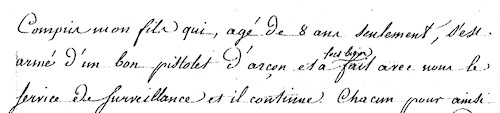 Compris mon fils qui, agé de 8 ans seulement, s'est
armé d'un bon pistolet d'arçon et a fait avec nous le
service de surveillance et il continue. Chacun pour ainsi